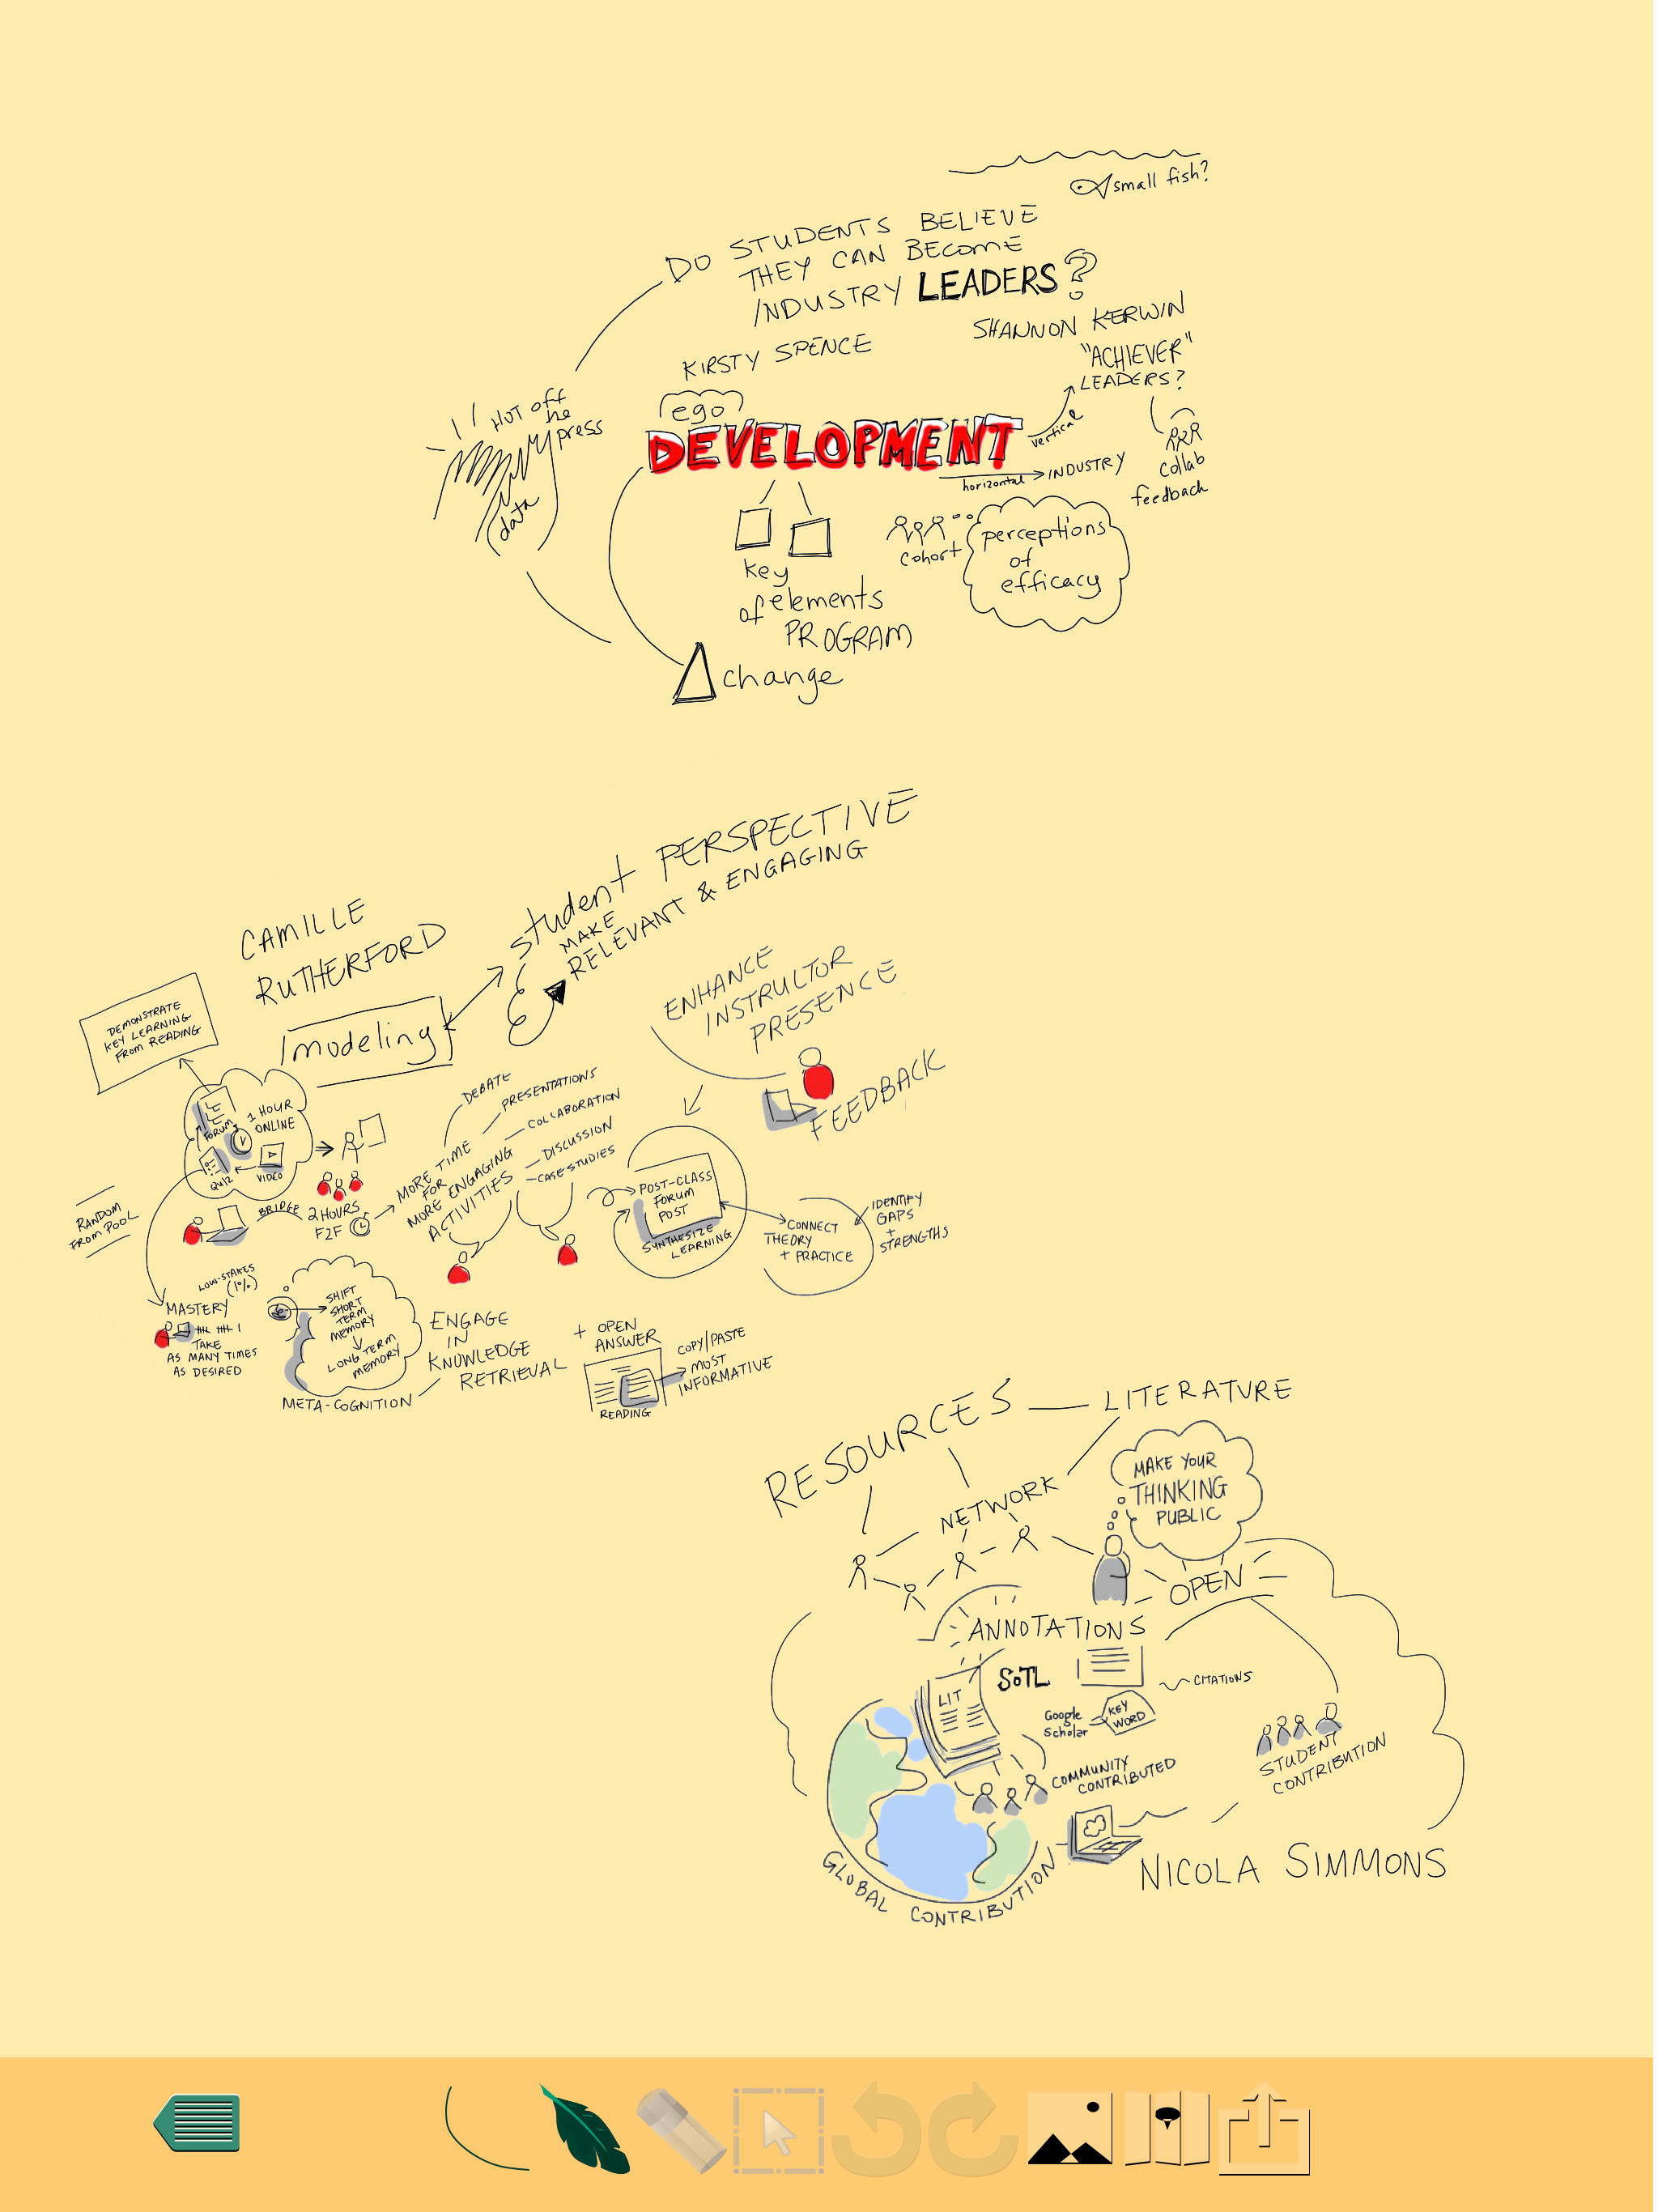 small fish?
DO STUDENTS BELIEVE
THEY CAN BECOME
INDUSTRY LEADERS?
KIRSTY SPENCE
SHANNON KERWIN
"ACHIEVER"
LEADERS?
HOT off
the
press
data
ego
DEVELOPMENT
vertical
horizontal
INDUSTRY
collab
feedback
cohort
perceptions
of
efficacy
key
elements
of
PROGRAM
change
student PERSPECTIVE
MAKE
RELEVANT & ENGAGING
CAMILLE
RUTHERFORD
modeling
DEMONSTRATE
KEY LEARNING
FROM READING
ENHANCE
INSTRUCTOR
PRESENCE
FEEDBACK
FORUM
1 HOUR
ONLINE
QUIZ
VIDEO
RANDOM
FROM POOL
BRIDGE
2 HOURS
F2F
MORE TIME
FOR
MORE ENGAGING
ACTIVITIES
DEBATE
PRESENTATIONS
COLLABORATION
DISCUSSION
CASE STUDIES
POST-CLASS
FORUM
POST
SYNTHESIZE
LEARNING
CONNECT
THEORY
+ PRACTICE
IDENTIFY
GAPS
+
STRENGTHS
LOW-STAKES
(1%)
MASTERY
TAKE
AS MANY TIMES
AS DESIRED
SHIFT
SHORT
TERM
MEMORY
LONG TERM
MEMORY
META-COGNITION
ENGAGE
IN
KNOWLEDGE
RETRIEVAL
+ OPEN
ANSWER
READING
COPY/PASTE
MOST
INFORMATIVE
RESOURCES
LITERATURE
NETWORK
MAKE YOUR
THINKING
PUBLIC
OPEN
ANNOTATIONS
LIT
SoTL
CITATIONS
Google
Scholar
KEY
WORD
COMMUNITY
CONTRIBUTED
STUDENT
CONTRIBUTION
GLOBAL CONTRIBUTION
NICOLA SIMMONS